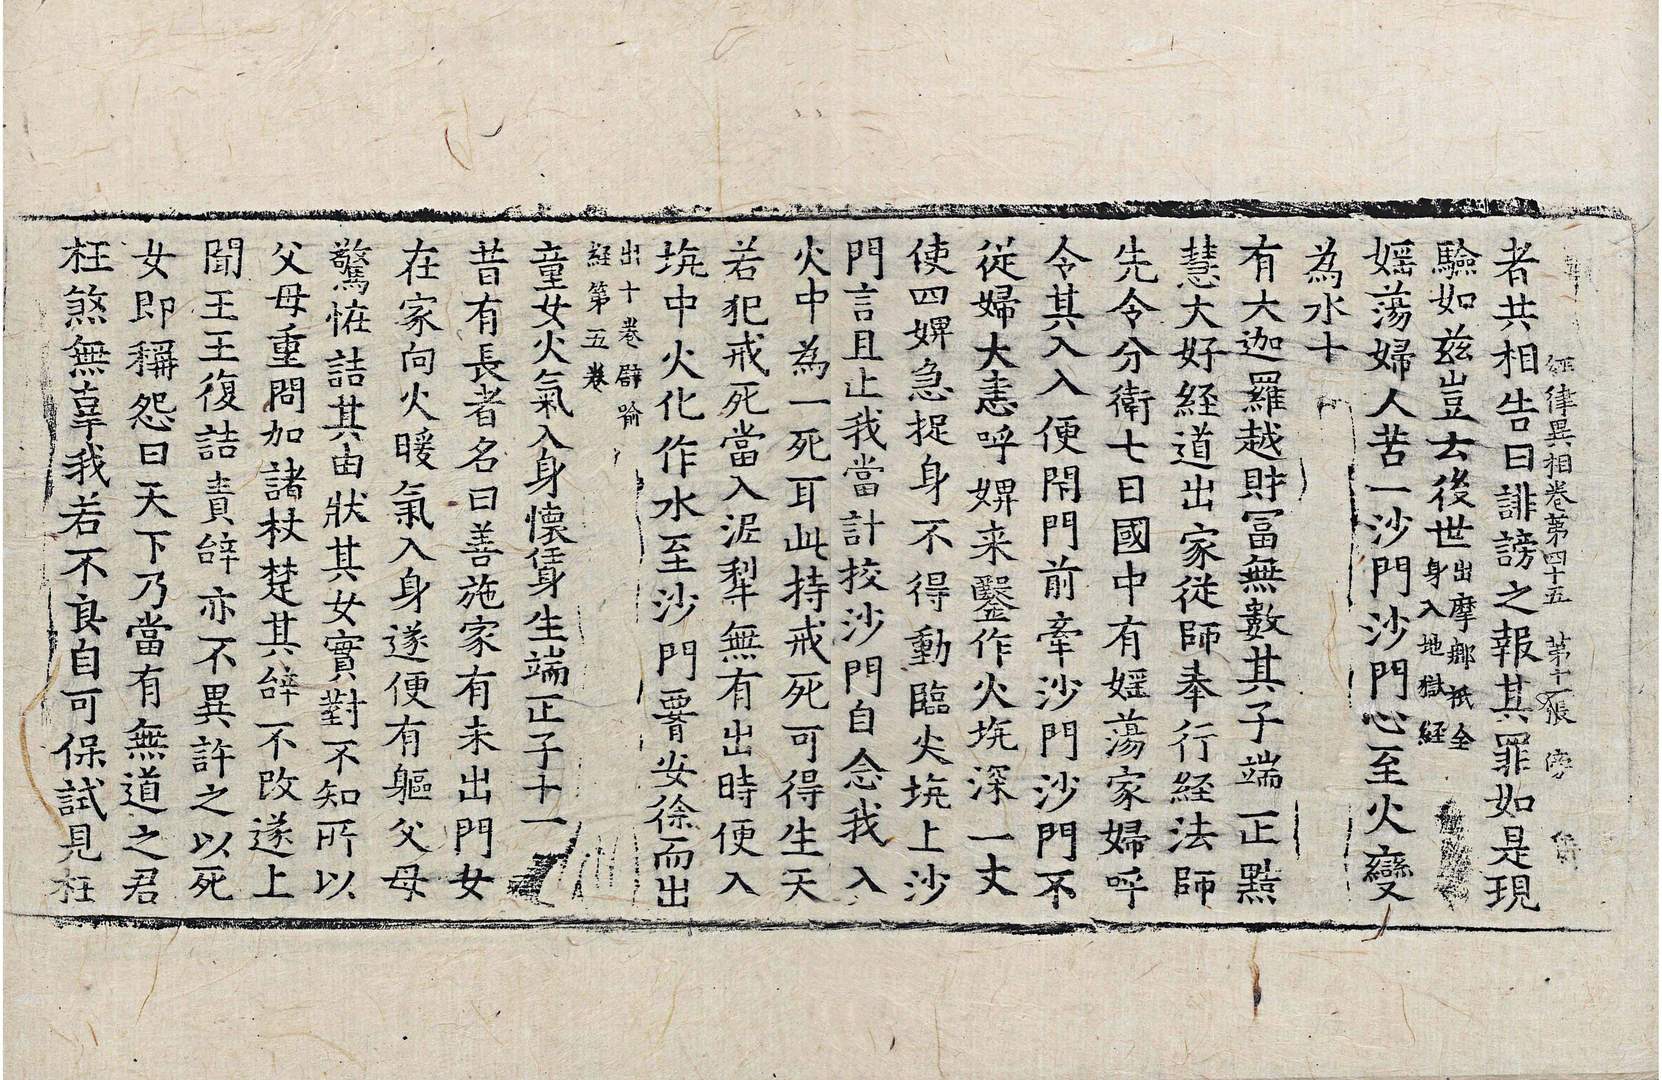 經律異相卷第四十五　第十八張
者共相告曰誹謗之報其罪如是現
驗如兹豈去後世出摩鄉祇全
身入地獄経
婬蕩婦人苦一沙門沙門心至火變
為水十
有大迦羅越財冨無數其子端正黠
慧大好経道出家從師奉行経法師
先令分衛七日國中有婬蕩家婦呼
令其入入便閇門前牽沙門沙門不
従婦大恚呼婢来鑿作火坑深一丈
使四婢急捉身不得動臨火坑上沙
門言且止我當計挍沙門自念我入
火中為一死耳此持戒死可得生天
若犯戒死當入泥犁無有出時便入
坑中火化作水至沙門𦝫安徐而出
出十卷辟喻
経第五卷
童女火氣入身懷𨈛身生端正子十一
昔有長者名曰善施家有未出門女
在家向火暖氣入身遂便有軀父母
驚恠詰其由狀其女實對不知所以
父母重問加諸杖楚其辝不改遂上
聞王王復詰責辝亦不異許之以死
女即稱怨曰天下乃當有無道之君
枉煞無辜我若不良自可保試見枉